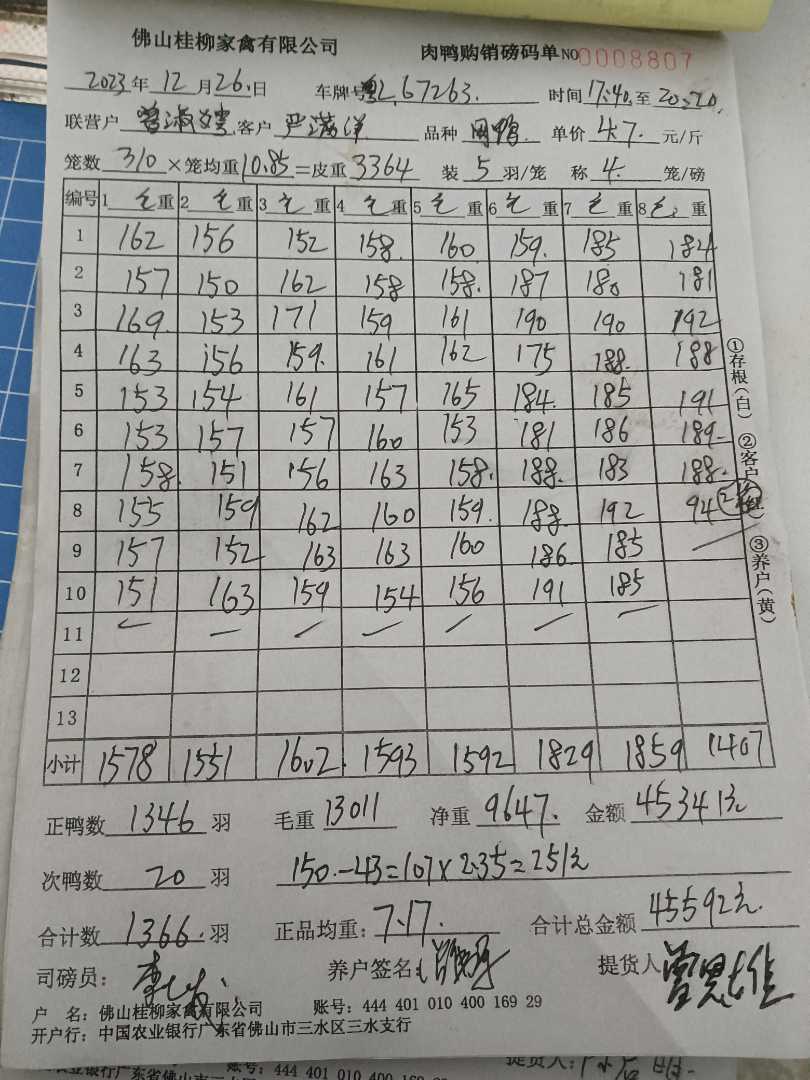 佛山桂柳家禽有限公司 肉鸭购销磅码单 NO 0008807
2023年 12月26日 车牌号 L67263. 时间 17:40 至 20:20
联营户 客户 严 品种 单价 4.7 元/斤
笼数 310 ×笼均重 10.85 =皮重 3364 装 5 羽/笼 称 4. 笼/磅
编号 1 毛重 2 毛重 3 毛重 4 毛重 5 毛重 6 毛重 7 毛重 8 毛重
1 162 156 152 158. 160 159. 185 184
2 157 150 162 158 158. 187 180 181
3 169. 153 171 159 161 190 190 192
4 163 156 159. 161 162 175 188. 188
5 153 154 161 157 165 184. 185 191
6 153 157 157 160 153 181 186 189
7 158. 151 156 163 158. 188. 183 188.
8 155 159 162 160 159. 188 192 94
9 157 152 163 163 160 186. 185
10 151 163 159 154 156 191 185
11
12
13
小计 1578 1551 1602. 1593 1592 1829 1859 1407
正鸭数 1346 羽 毛重 13011 净重 9647. 金额 45341元
次鸭数 20 羽 150.-43=107×2.35=251元
合计数 1366. 羽 正品均重: 7.17. 合计总金额 45592元.
司磅员: 养户签名: 提货人
户 名: 佛山桂柳家禽有限公司 账号: 444 401 010 400 169 29
开户行: 中国农业银行广东省佛山市三水区三水支行
①存根(白) ②客户( ) ③养户(黄)
农业银行广东省佛山市三 账号: 444 401 010 400 169 29 提货人: